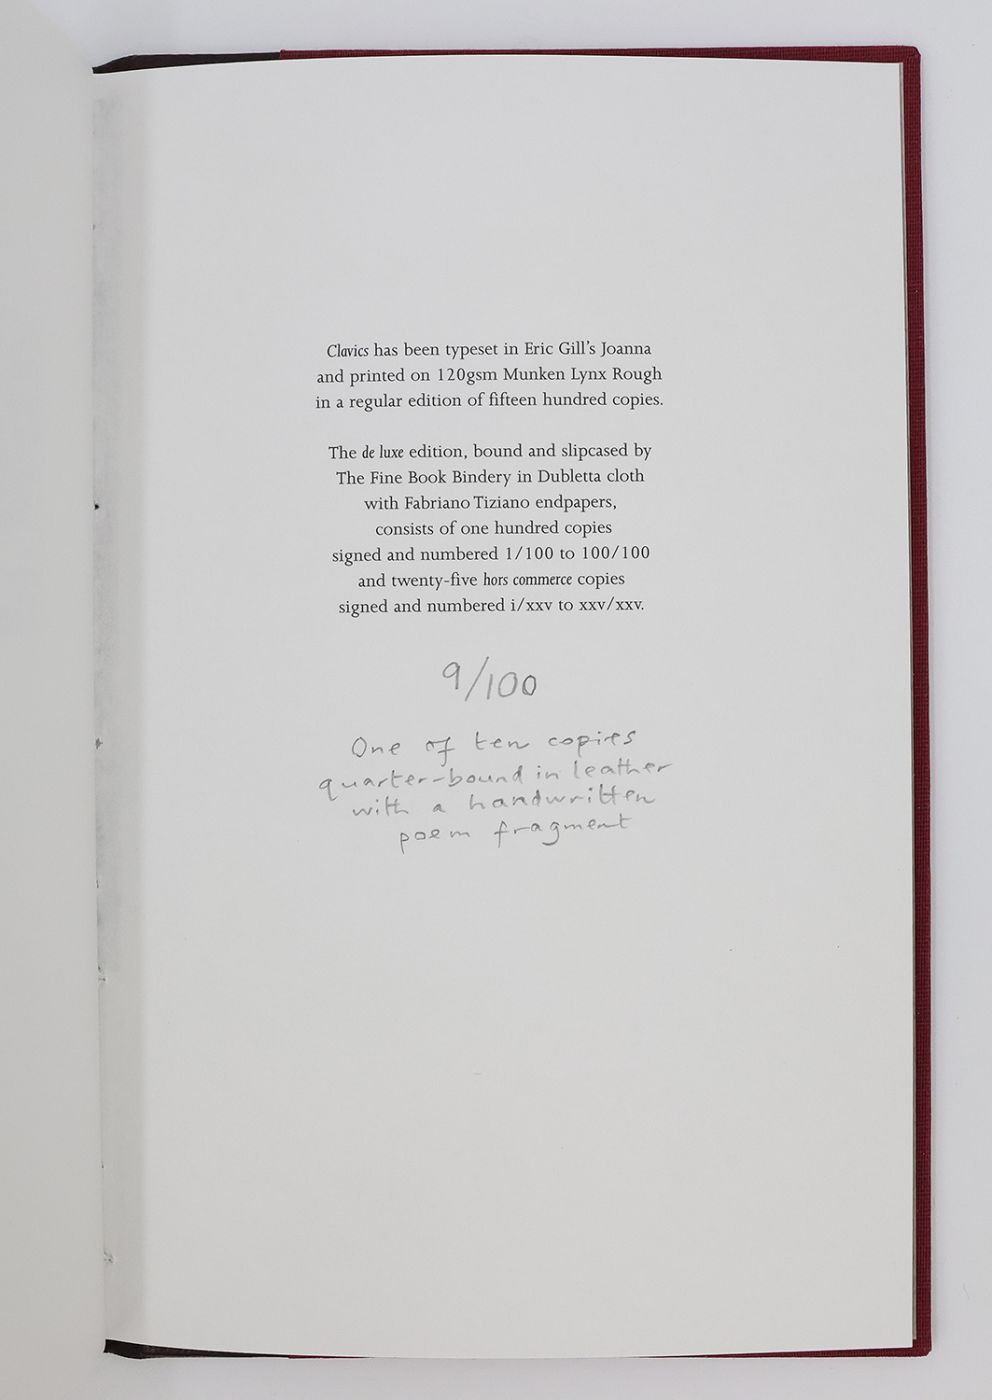 Clavics has been typeset in Eric Gill's Joanna
and printed on 120gsm Munken Lynx Rough
in a regular edition of fifteen hundred copies.
The de luxe edition, bound and slipcased by
The Fine Book Bindery in Dubletta cloth
with Fabriano Tiziano endpapers,
consists of one hundred copies
signed and numbered 1/100 to 100/100
and twenty-five hors commerce copies
signed and numbered i/xxv to xxv/xxv.
9/100
One of ten copies
quarter-bound in leather
with a handwritten
poem fragment